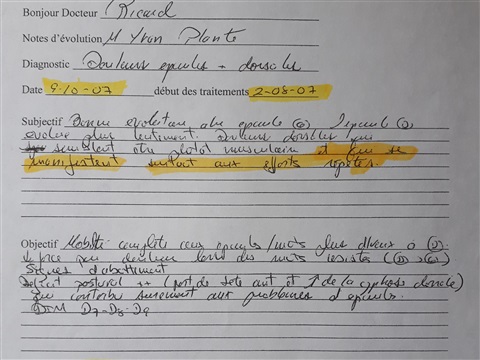 Bonjour Docteur Ricard
Notes d'évolution M Yvon Plante
Diagnostic Douleurs épaules + dorsales
Date 9-10-07 début des traitements 2-08-07
Subjectif Bonne évolution épaule (G) épaule (D)
évolue plus lentement. Douleurs dorsales qui
semblent être plutôt musculaire et qui se
manifestent surtout aux efforts répétés.
Objectif Mobilité complète épaules / mais plus
par douleur lors des mvts résistés (D > G)
Signes d'abattement
Déficit postural ++ (port de tête ant et ↑ de la cyphose dorsale)
qui contribue sûrement aux problèmes d'épaules.
D7-D8-D9